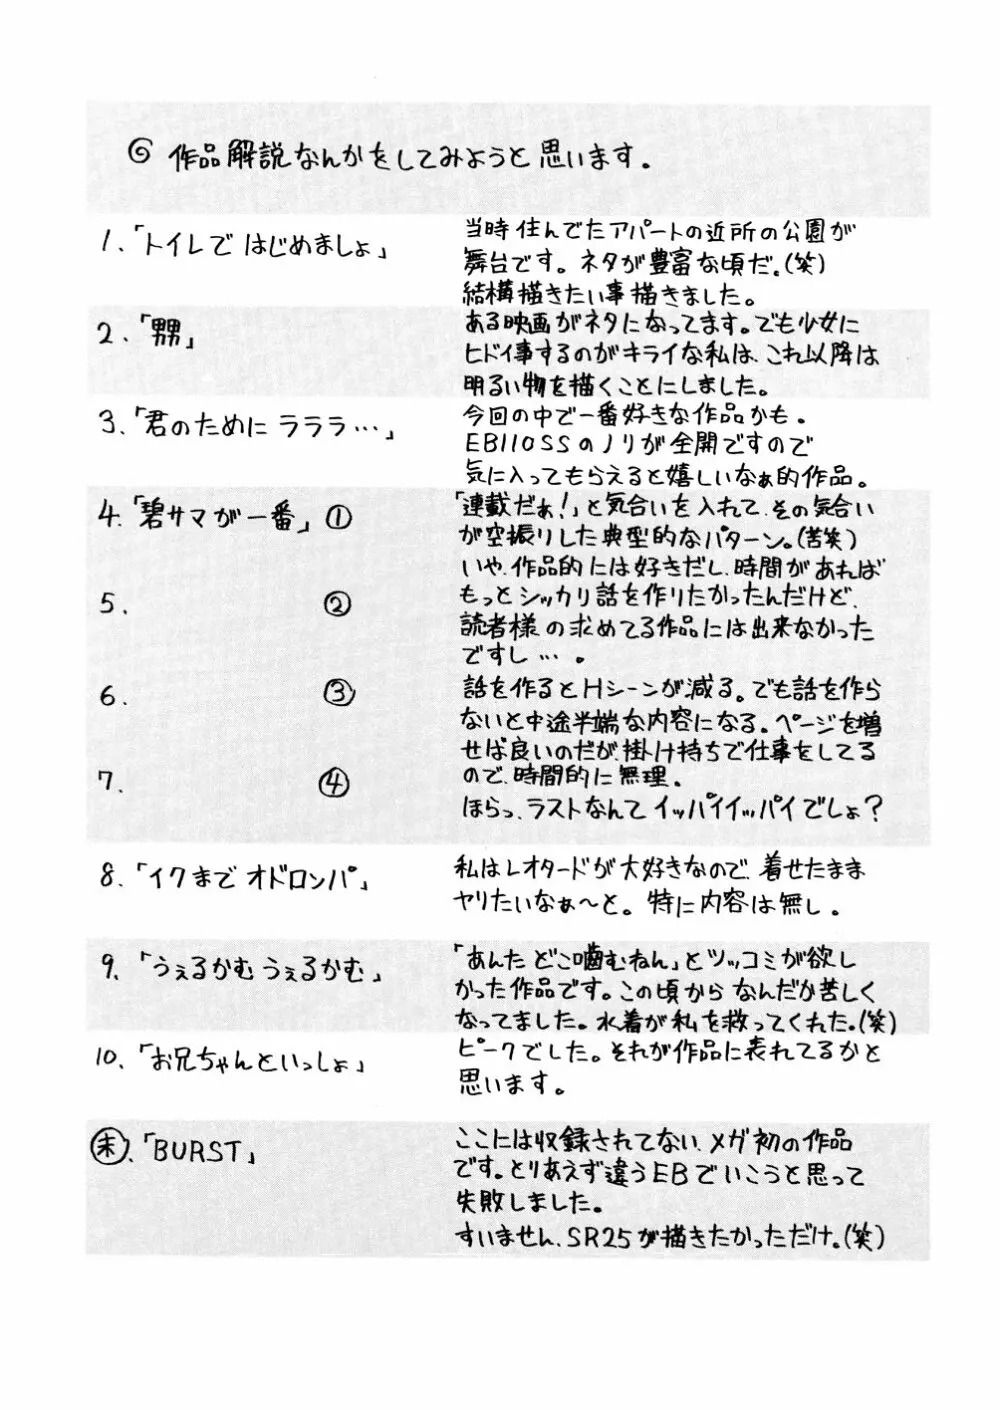 ◎ 作品解説なんかをしてみようと思います。
1.「トイレで はじめましょ」
当時住んでたアパートの近所の公園が
舞台です。ネタが豊富な頃だ。(笑)
結構描きたい事描きました。
2.「嬲」
ある映画がネタになってます。でも少女に
ヒドイ事するのがキライな私は、これ以降は
明るい物を描くことにしました。
3.「君のために ラララ…」
今回の中で一番好きな作品かも。
EB110SSのノリが全開ですので
気に入ってもらえると嬉しいなぁ的作品。
4.「碧サマが一番」①
5. ②
6. ③
7. ④
「連載だぁ!」と気合いを入れて、その気合い
が空振りした典型的なパターン。(苦笑)
いや、作品的には好きだし、時間があれば
もっとシッカリ話を作りたかったんだけど、
読者様の求めてる作品には出来なかった
ですし…。
話を作るとHシーンが減る。でも話を作ら
ないと中途半端な内容になる。ページを増
せば良いのだが、掛け持ちで仕事をしてる
ので、時間的に無理。
ほらっ、ラストなんてイッパイイッパイでしょ?
8.「イクまで オドロンパ」
私はレオタードが大好きなので、着せたまま
ヤリたいなぁ〜と。特に内容は無し。
9.「うぇるかむ うぇるかむ」
「あんた どこ噛むねん」とツッコミが欲し
かった作品です。この頃から なんだか苦しく
なってました。水着が私を救ってくれた。(笑)
10.「お兄ちゃんといっしょ」
ピークでした。それが作品に表れてるかと
思います。
㊍.「BURST」
ここには収録されてない、メガ初の作品
です。とりあえず違うEBでいこうと思って
失敗しました。
すいません、SR25が描きたかっただけ。(笑)